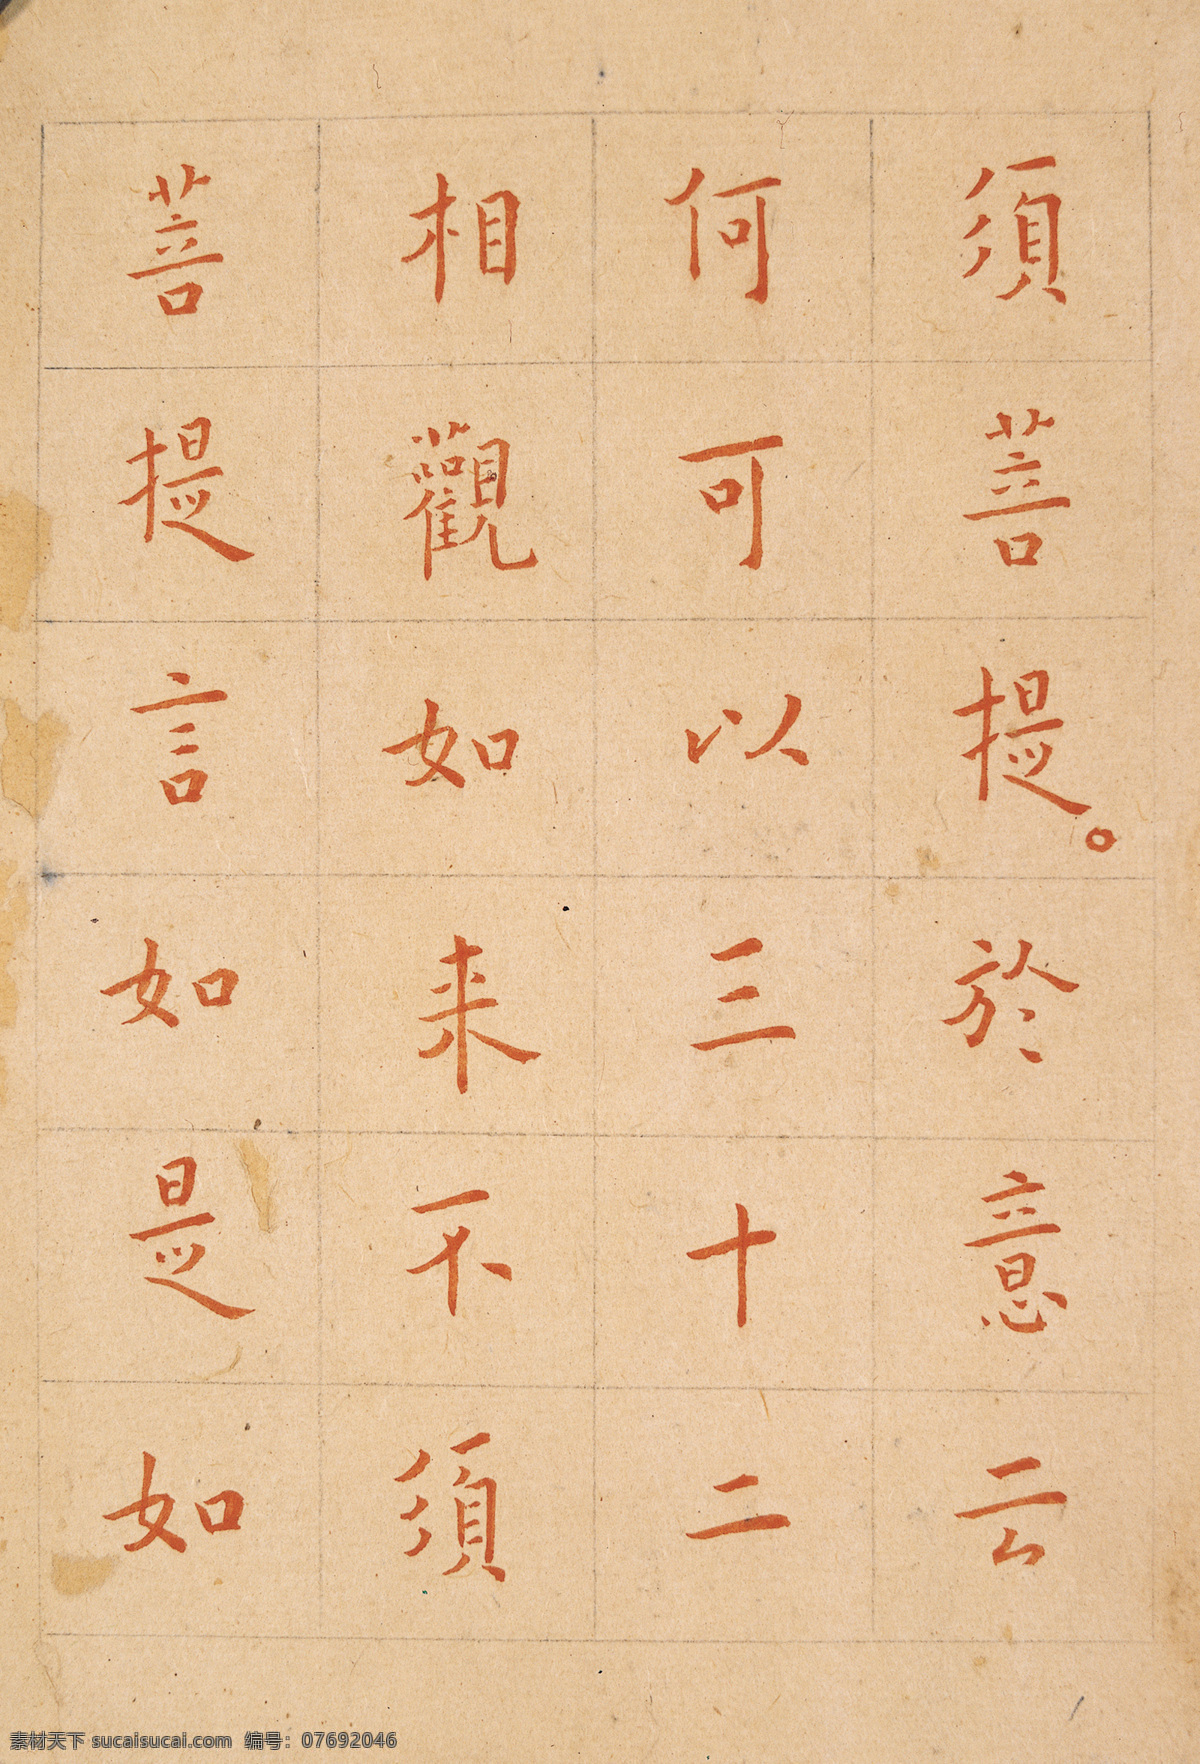 須菩提。於意云
何可以三十二
相觀如来不須
菩提言如是如
素材天下 sucaisucai.com 编号：07692046